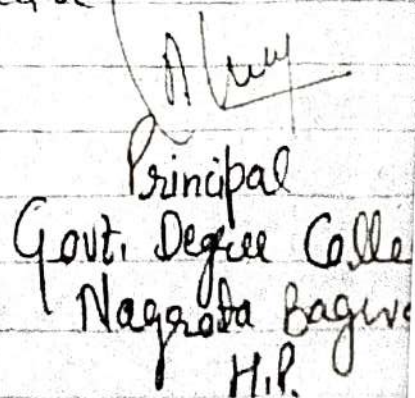 Principal
Govt. Degree Colle
Nagrota Bagwa
H.P.